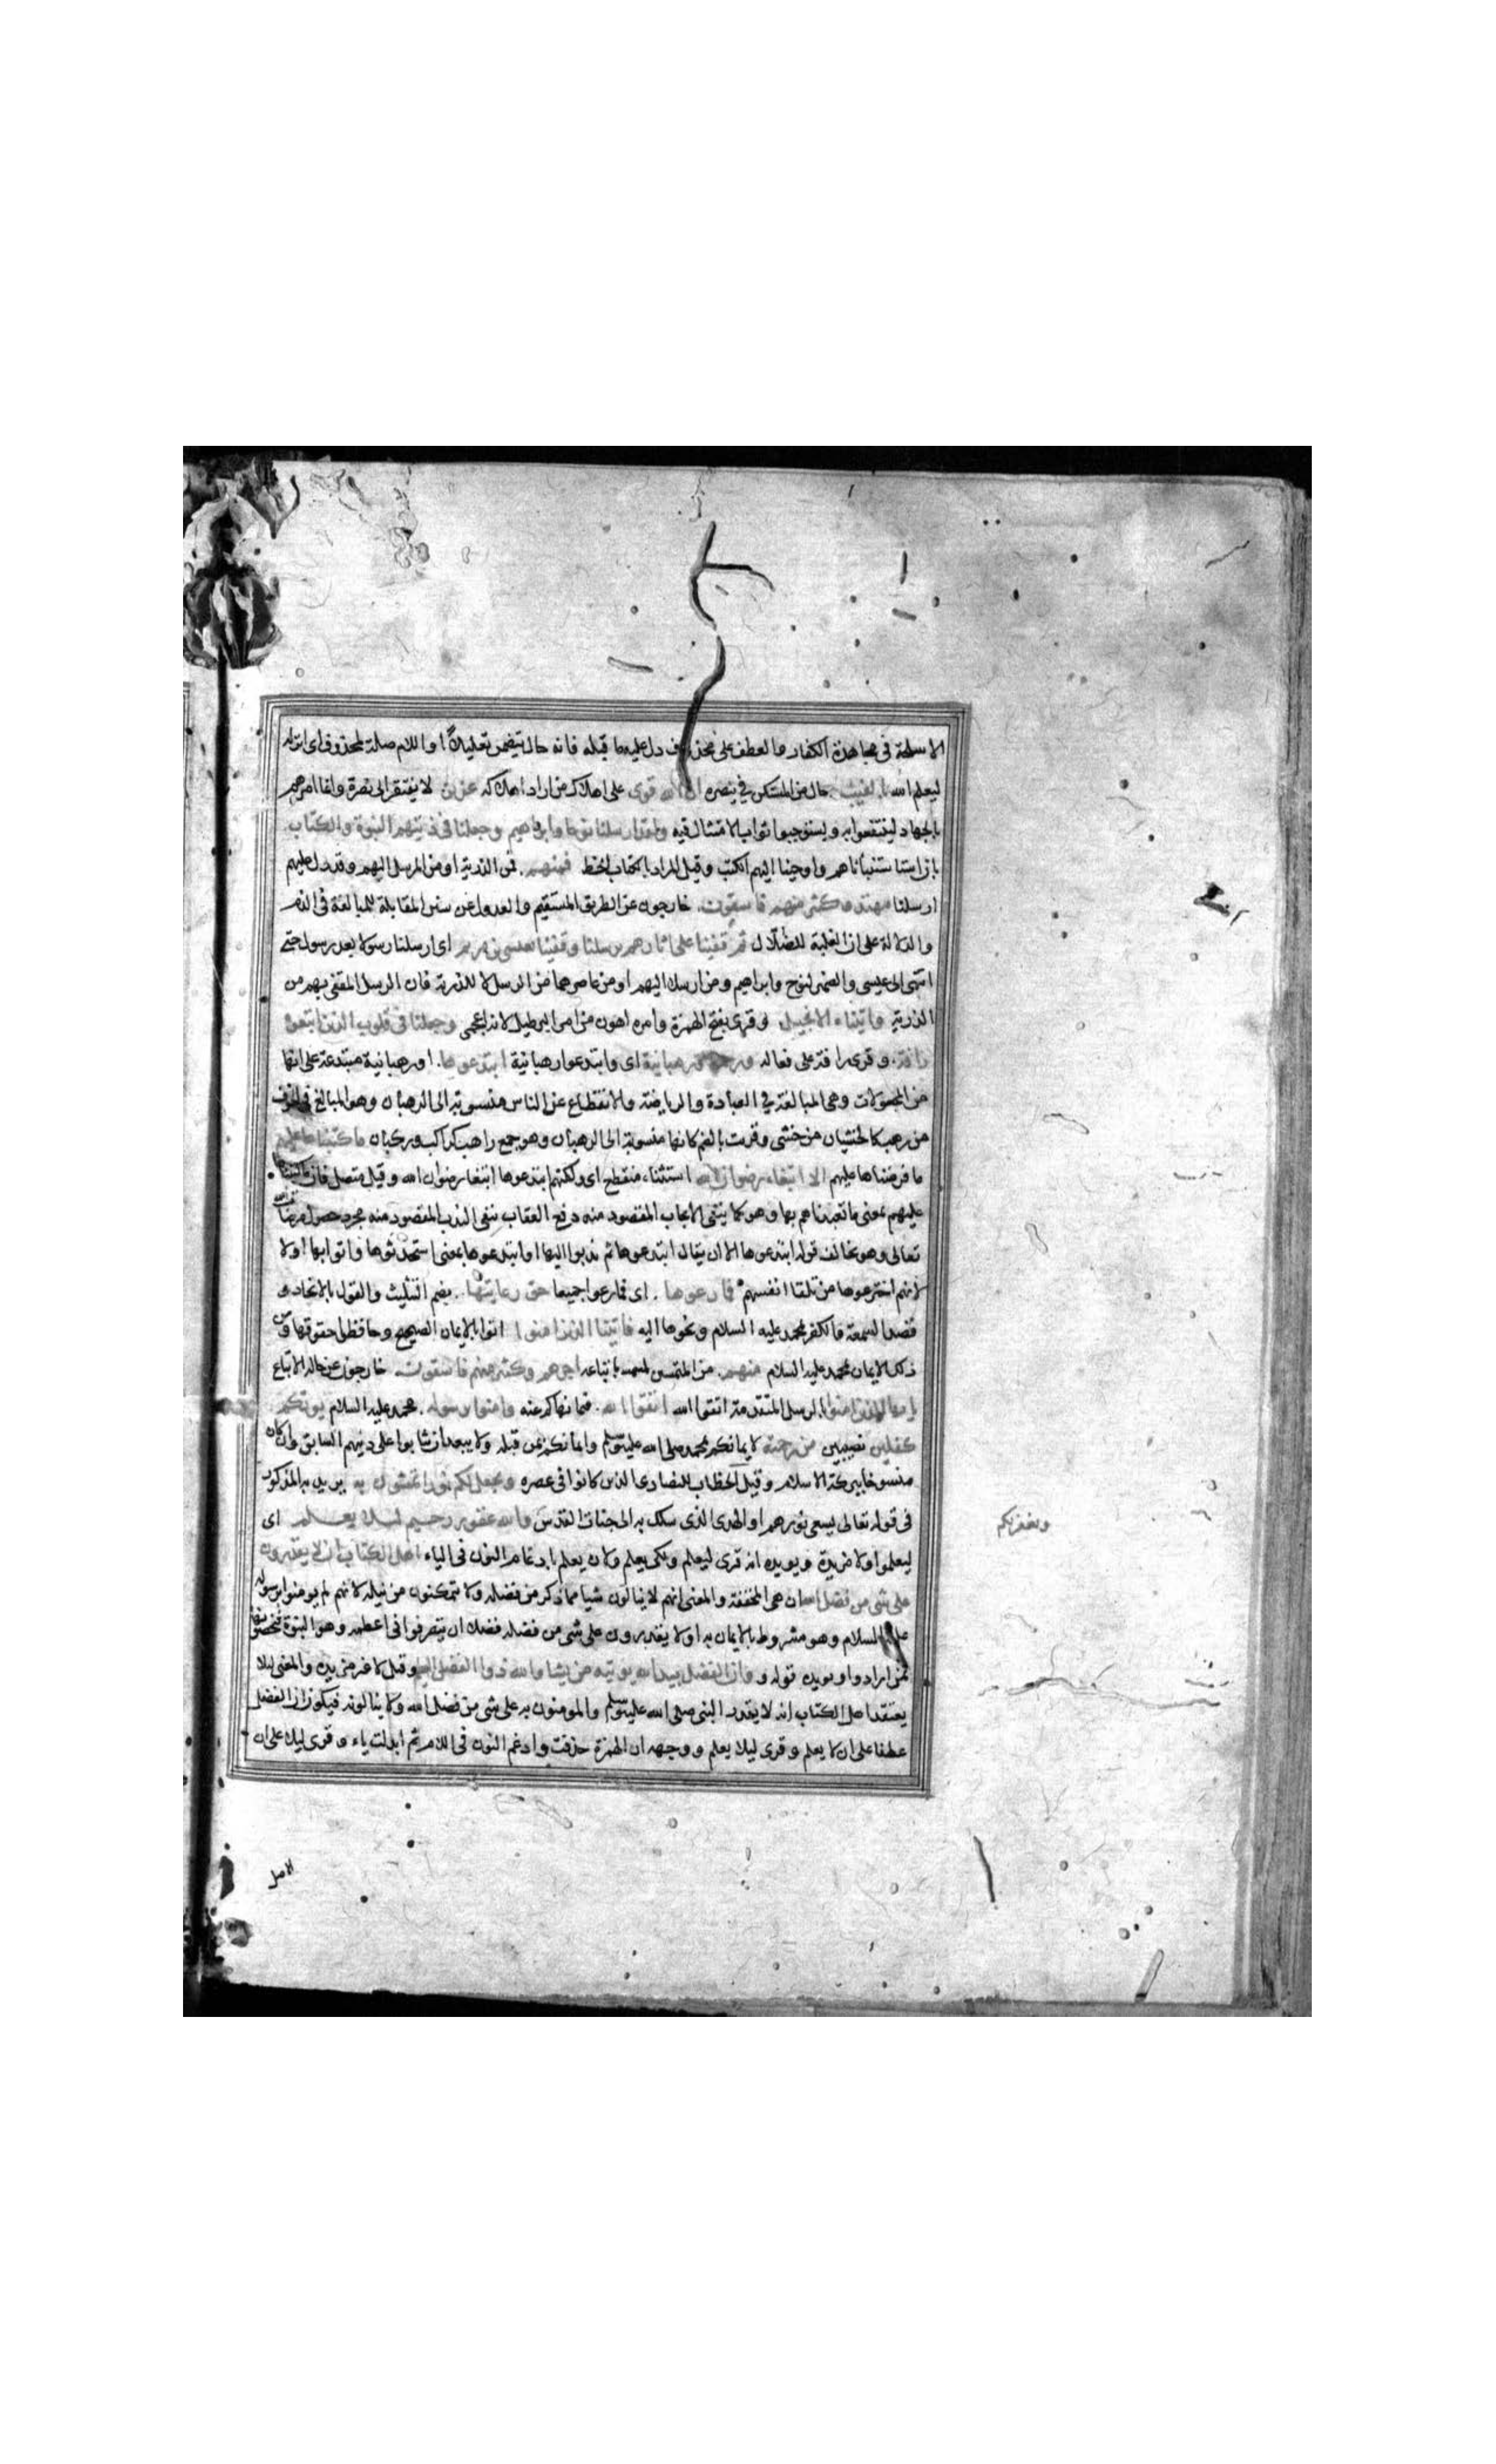 الاسلحة في مجاهدة الكفار والعطف على محذوف دل عليه ما قبله فانه حال يتضمن تعليلا او اللام صلة لمحذوف اى انزله
ليعلم الله بالغيب حال من المستكن في ينصره ان الله قوى على اهلاك من اراد اهلاكه عزيز لا يفتقر الى نصرة وانما امرهم
بالجهاد لينتفعوا به ويستوجبوا ثواب الامتثال فيه ولقد ارسلنا نوحا وابراهيم وجعلنا في ذريتهما النبوة والكتاب
بان استنبأناهم واوحينا اليهم الكتب وقيل المراد بالكتاب الخط فمنهم فمن الذرية او من المرسل اليهم وقد دل عليهم
ارسلنا مهتد وكثير منهم فاسقون خارجون عن الطريق المستقيم والعدول عن سنن المقابلة للمبالغة في الذم
والدلالة على ان الغلبة للضلال ثم قفينا على اثارهم برسلنا وقفينا بعيسى بن مريم اى ارسلنا رسولا بعد رسول حتى
انتهى الى عيسى والضمير لنوح وابراهيم ومن ارسلا اليهم او من عاصرهما من الرسل لا للذرية فان الرسل المقفى بهم من
الذرية واتيناه الانجيل وقرئ بفتح الهمزة وامره اهون من امر البرطيل لانه اعجمى وجعلنا في قلوب الذين اتبعوه
رافة وقرئ رافة على فعالة ورحمة ورهبانية اى وابتدعوا رهبانية ابتدعوها او رهبانية مبتدعة على انها
من المجعولات وهى المبالغة في العبادة والرياضة والانقطاع عن الناس منسوبة الى الرهبان وهو المبالغ في الخوف
من رهب كالخشيان من خشى وقرئت بالضم كانها منسوبة الى الرهبان وهو جمع راهب كراكب وركبان ما كتبناها عليهم
ما فرضناها عليهم الا ابتغاء رضوان الله استثناء منقطع اى ولكنهم ابتدعوها ابتغاء رضوان الله وقيل متصل فان ما كتبناها
عليهم بمعنى ما تعبدناهم بها وهو كما ينفى الايجاب المقصود منه دفع العقاب ينفى الندب المقصود منه مجرد حصول مرضاة الله
تعالى وهو يخالف قوله ابتدعوها الا ان يقال ابتدعوها ثم ندبوا اليها او ابتدعوها بمعنى استحدثوها واتوا بها اولا
لانهم اخترعوها من تلقاء انفسهم فما رعوها اى فما رعوا جميعا حق رعايتها بضم التثليث والقول بالاتحاد و
قصد السمعة والكفر بمحمد عليه السلام ونحوها اليه فاتينا الذين امنوا اتوا بالايمان الصحيح وحافظوا حقوقها ومن
ذلك الايمان بمحمد عليه السلام منهم من المتسمين باتباعه اجرهم وكثير منهم فاسقون خارجون عن حال الاتباع
يا ايها الذين امنوا بالرسل المتقدمة اتقوا الله اتقوا الله فيما نهاكم عنه وامنوا برسوله محمد عليه السلام يؤتكم
كفلين نصيبين من رحمته لايمانكم بمحمد صلى الله عليه وسلم وايمانكم بمن قبله ولا يبعد ان يثابوا على دينهم السابق وان كان
منسوخا ببركة الاسلام وقيل الخطاب للنصارى الذين كانوا في عصره ويجعل لكم نورا تمشون به يريد به المذكور
في قوله تعالى يسعى نورهم او الهدى الذى سلك به الى جنات القدس والله غفور رحيم لئلا يعلم اى
ويغفر لكم
ليعلموا ولا مزيدة ويويده انه قرى ليعلم ولكى يعلم ولان يعلم بادغام النون في الياء اهل الكتاب ان لا يقدرون
على شى من فضل الله ان هى المخففة والمعنى انهم لا ينالون شيا مما ذكر من فضله ولا يتمكنون من نيله لانهم لم يومنوا برسوله
عليه السلام وهو مشروط بالايمان به او لا يقدرون على شى من فضله فضلا ان يتصرفوا في اعظمه وهو النبوة
بمن ارادوا ويويده قوله وان الفضل بيد الله يوتيه من يشا والله ذوا الفضل العظيم وقيل لا غير مزيدة والمعنى لئلا
يعتقد اهل الكتاب انه لا يقدر النبى صلى الله عليه وسلم والمومنون به على شى من فضل الله ولا ينالونه فيكون وان الفضل
عطفا على ان لا يعلم وقرى ليلا يعلم ووجهه ان الهمزة حذفت وادغم النون في اللام ثم ابدلت ياء وقرى ليلا على ان
الاصل